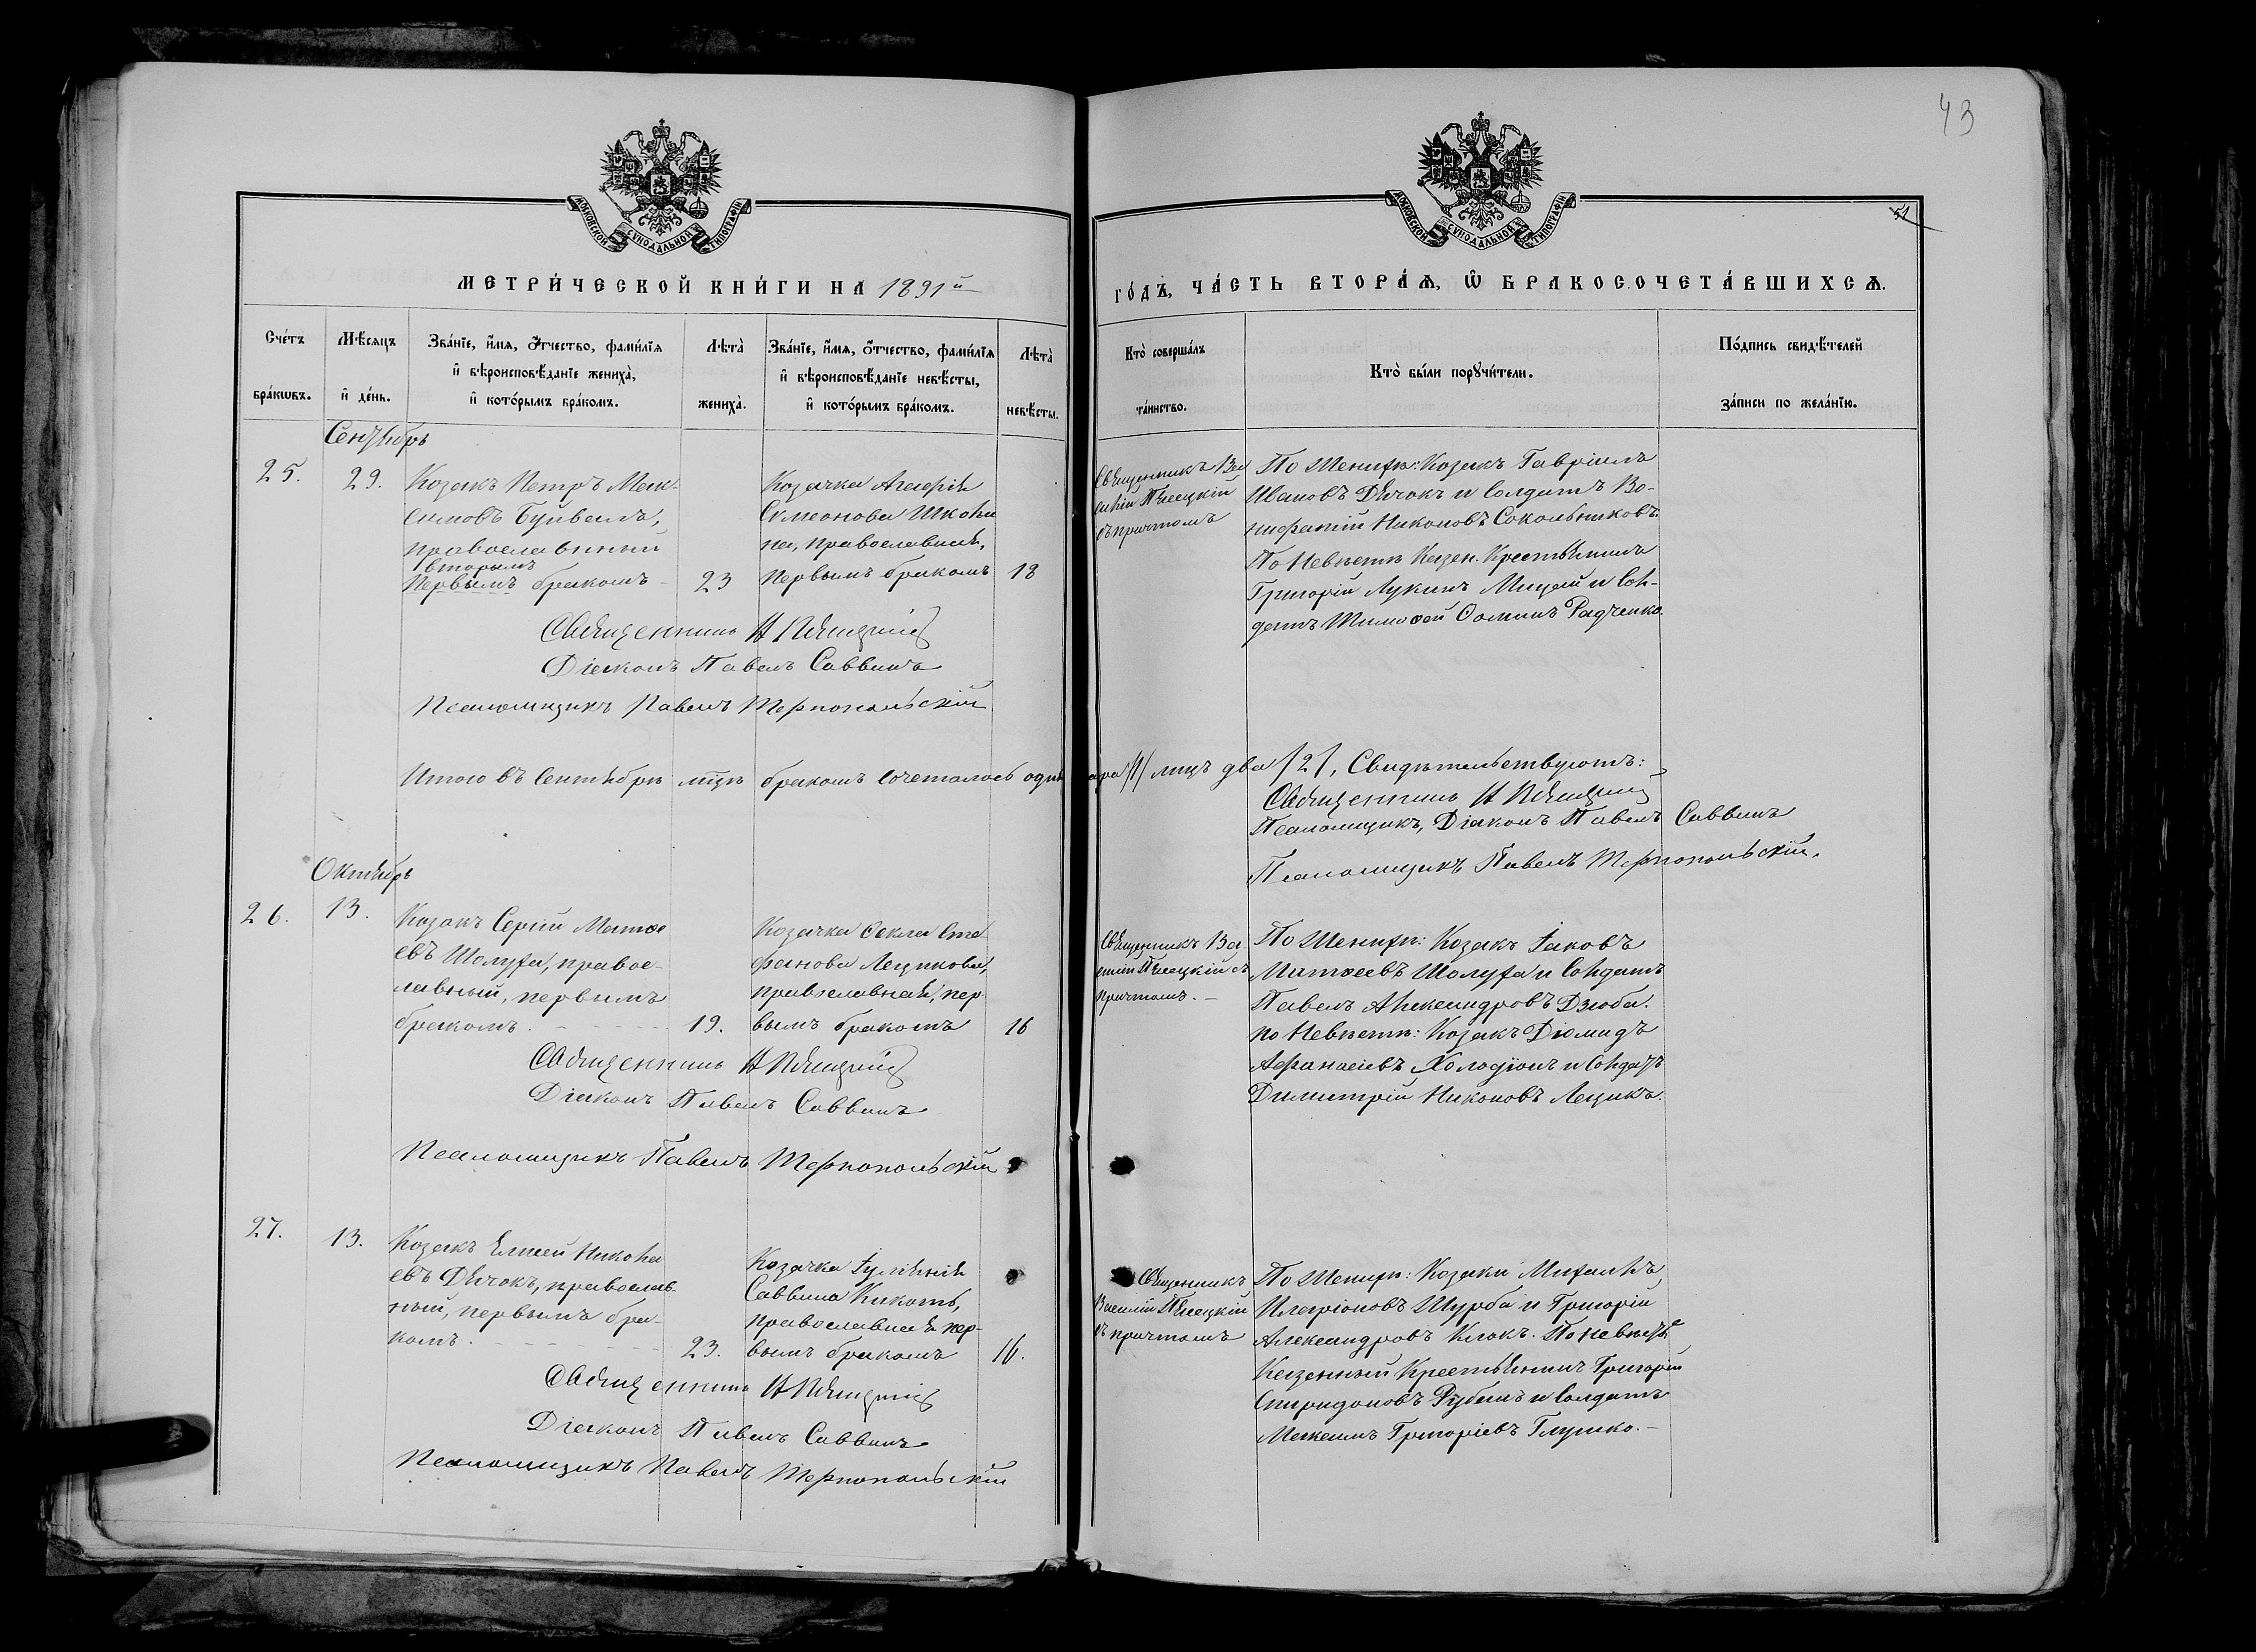 43
51
МОСКОВСКОЙ СѴНОДАЛЬНОЙ ТИПОГРАФІИ
МОСКОВСКОЙ СѴНОДАЛЬНОЙ ТИПОГРАФІИ
МЕТРИ́ЧЕСКОЙ КНИ́ГИ НА 1891й
ГО́ДЪ, ЧА́СТЬ ВТОРА́Ѧ, Ѡ҆ БРАКОСОЧЕТА́ВШИХСѦ.
Сче́тъ бра́кѡвъ.
Мѣ́сяцъ и҆ де́нь.
Зва́нїе, и҆́мя, ѻ҆́тчество, фами́лїя
и҆ вѣроисповѣ́данїе жениха̀,
и҆ кото́рымъ бра́комъ.
Лѣта̀ жениха̀.
Зва́нїе, и҆́мя, ѻ҆́тчество, фами́лїя
и҆ вѣроисповѣ́данїе невѣ́сты,
и҆ кото́рымъ бра́комъ.
Лѣта̀ невѣ́сты.
Кто̀ соверша́лъ
та́инство.
Кто̀ бы́ли порꙋчи́тели.
По́дпись свидѣ́телей
за́писи по жела́нїю.
Сентябрь
25.
29.
Козакъ Петръ Мак-
симовъ Буйвалъ,
православный
вторымъ
Первымъ бракомъ - 23
Козачка Агафія
Симеонова Школи
на, православная,
первымъ бракомъ 18
Священникъ Ва
силій Пясецкій
съ причтомъ
По Женихѣ: Козакъ Гавріилъ
Ивановъ Дячокъ и Солдатъ Во-
нифатій Никоновъ Сокольниковъ.
По Невѣстѣ Казен. Крестьянинъ
Григорій Лукинъ Мицай и Сол-
датъ Тимоѳей Ѳоминъ Радченко.
Священникъ В Пясецкій
Діаконъ Павелъ Саввинъ
Псаломщикъ Павелъ Терпопольскій
Итого въ Сентябрѣ мцѣ бракомъ сочеталось одна пара /1/ лицъ два /2/, Свидѣтельствуютъ:
Священникъ В Пясецкій
Псаломщикъ, Діаконъ Павелъ Саввинъ
Псаломщикъ Павелъ Терпопольскій.
Октябрь
26.
13.
Козакъ Сергій Матѳе
евъ Шолуха, право-
славный, первымъ
бракомъ. - 19.
Козачка Ѳекла Сте
фанова Лещикова,
православная, пер
вымъ бракомъ 16
Священникъ Ва
силій Пясецкій съ
причтомъ. -
По Женихѣ: Козакъ Іаковъ
Матѳеевъ Шолуха и Солдатъ
Павелъ Александровъ Дзюба.
по Невѣстѣ: Козакъ Діомидъ
Афанасіевъ Холодіонъ и Солдатъ
Димитрій Никоновъ Лещикъ.
Священникъ В Пясецкій
Діаконъ Павелъ Саввинъ
Псаломщикъ Павелъ Терпопольскій
27.
13.
Козакъ Елисей Никола
евъ Дячокъ, православ-
ный, первымъ бра-
комъ. - 23.
Козачка Іуліанія
Саввина Кикоть,
православная пер-
вымъ бракомъ 16.
Священникъ
Василій Пясецкій
съ причтомъ
По Женихѣ: Козаки Михаилъ
Иларіоновъ Шурба и Григорій
Александровъ Клокъ. По невѣстѣ
Казенный Крестьянинъ Григорій
Спиридоновъ Рубанъ и Солдатъ
Максимъ Григоріевъ Глушко. -
Священникъ В Пясецкій
Діаконъ Павелъ Саввинъ
Псаломщикъ Павелъ Терпопольскій